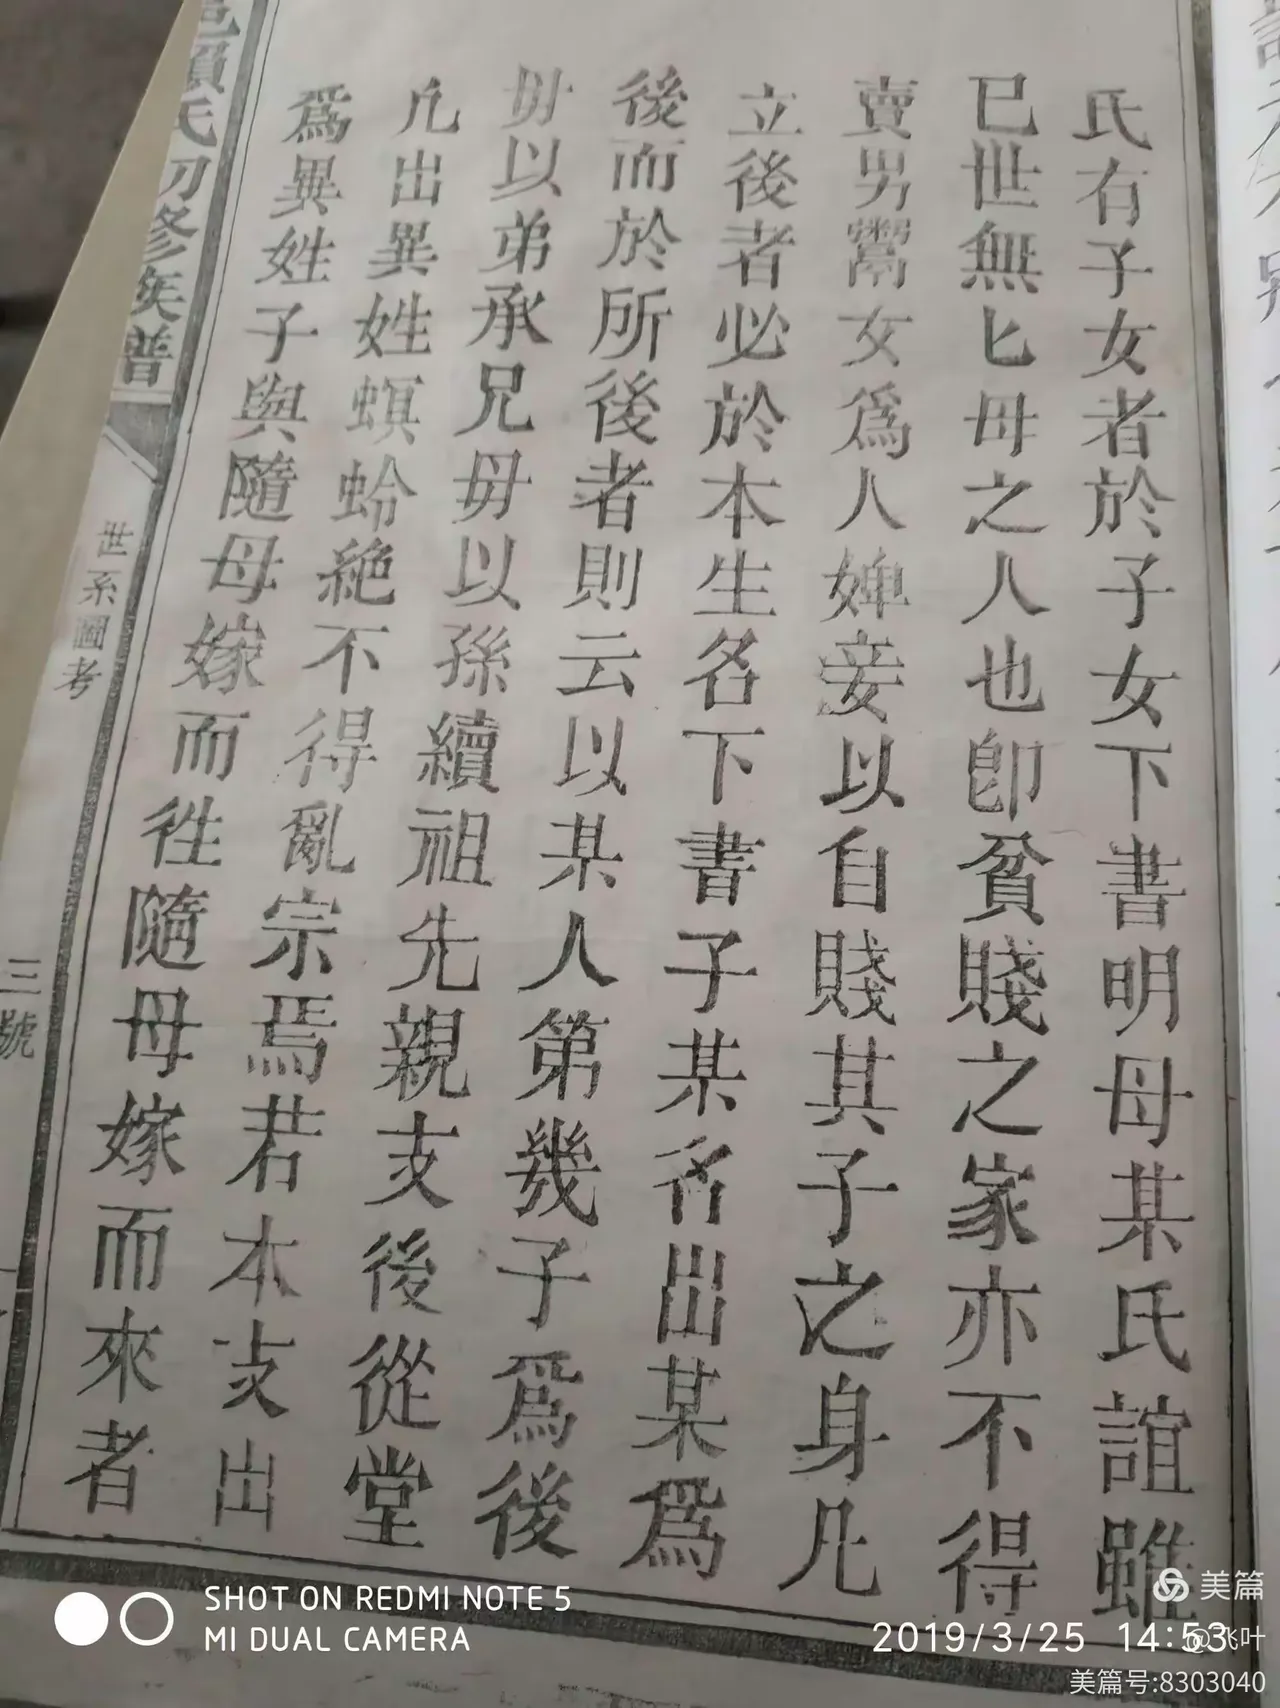 氏有子女者於子女下書明母某氏誼雖
已世無匕母之人也卽貧賤之家亦不得
賣男鬻女爲人婢妾以自賤其子之身凡
立後者必於本生名下書子某名出某爲
後而於所後者則云以某人第幾子爲後
毋以弟承兄毋以孫續祖先親支後從堂
凡出異姓螟蛉絶不得亂宗焉若本支出
爲異姓子與隨母嫁而徃隨母嫁而來者
邑賴氏初修族譜
世系圖考
三號
SHOT ON REDMI NOTE 5
MI DUAL CAMERA
2019/3/25 14:53
美篇
@飞叶
美篇号:8303040